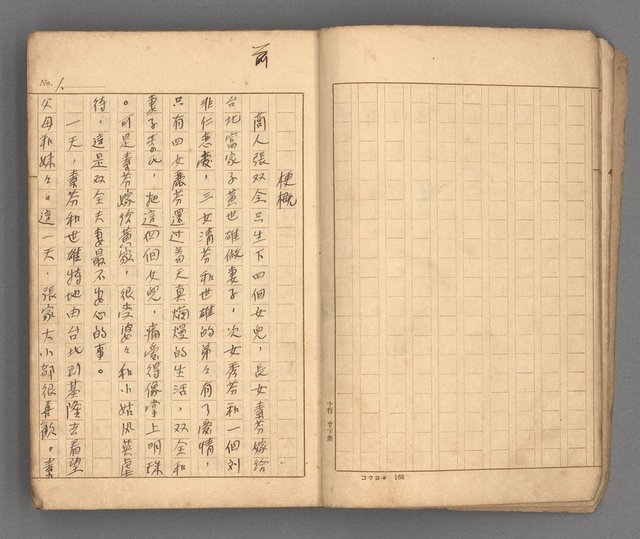 前
No. 1.
梗概
商人張双全只生下四個女兒,長女素芬嫁給
台北富家子黃世雄做妻子,次女秀芬和一個刘
非仁恋愛,三女清芬和世雄的弟々有了愛情,
只有四女麗芬還过着天真爛熳的生活,双全和
妻子李氏,把這四個女兒,痛愛得像掌上明珠
。可是素芬嫁给黃家,很受婆々和小姑风英虐
待,這是双全夫妻最不安心的事。
一天,素芬和世雄特地由台北到基隆去看望
父母和妹々。這一天,張家大小都很喜歡。素
コクヨ 168